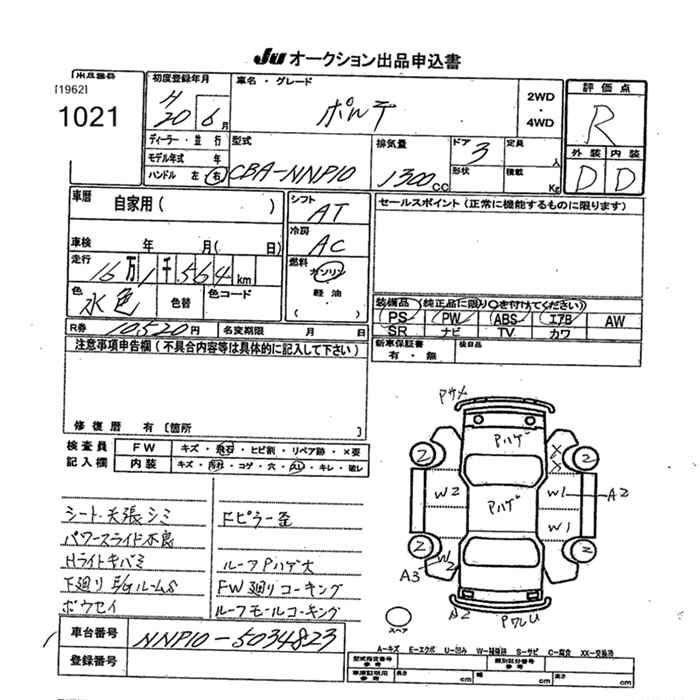 JU オークション出品申込書
出品番号
[1962]
1021
初度登録年月
H20 6月
車名・グレード
ポルテ
2WD
・
4WD
評価点
R
外装 内装
D D
ディーラー・並行
モデル年式 年
ハンドル 左 右
型式
CBA-NNP10
排気量
1300CC
ドア
3
形状
定員
人
積載
Kg
車歴
自家用 ( )
車検 年 月( 日)
走行
16万1千564km
色
水色
色替
色コード
シフト
AT
冷房
AC
燃料
ガソリン
軽油
( )
セールスポイント (正常に機能するものに限ります)
装備品 (純正品に限り○を付けてください)
PS PW ABS エアB AW
SR ナビ TV カワ
新車保証書
有・無
検自品
R券 10,520円 名変期限 月 日
注意事項申告欄 (不具合内容等は具体的に記入して下さい)
修復歴 有 〔箇所
検査員
記入欄
FW キズ・飛石・ヒビ割・リペア跡・×要
内装 キズ・汚れ・コゲ・穴・スレ・キレ・破レ
シート・天張シミ
パワースライド不良
Hライトキバミ
下廻り E/gルームS
ボウセイ
Fピラー歪
ルーフPハゲ大
FW廻りコーキング
ルーフモールコーキング
Pサメ
Pハゲ
2
2
X
X
W2
Pハゲ
W1
A2
W1
2
2
A3
W2
A2
PワレU
スペア
車台番号 NNP10-5034823
登録番号
A-キズ E-エクボ U-凹み W-補修跡 S-サビ C-腐食 XX-交換済
型式指定番号
参考
類別区分番号
参考
車庫証明用
参考
長さ cm 幅 cm 高さ cm